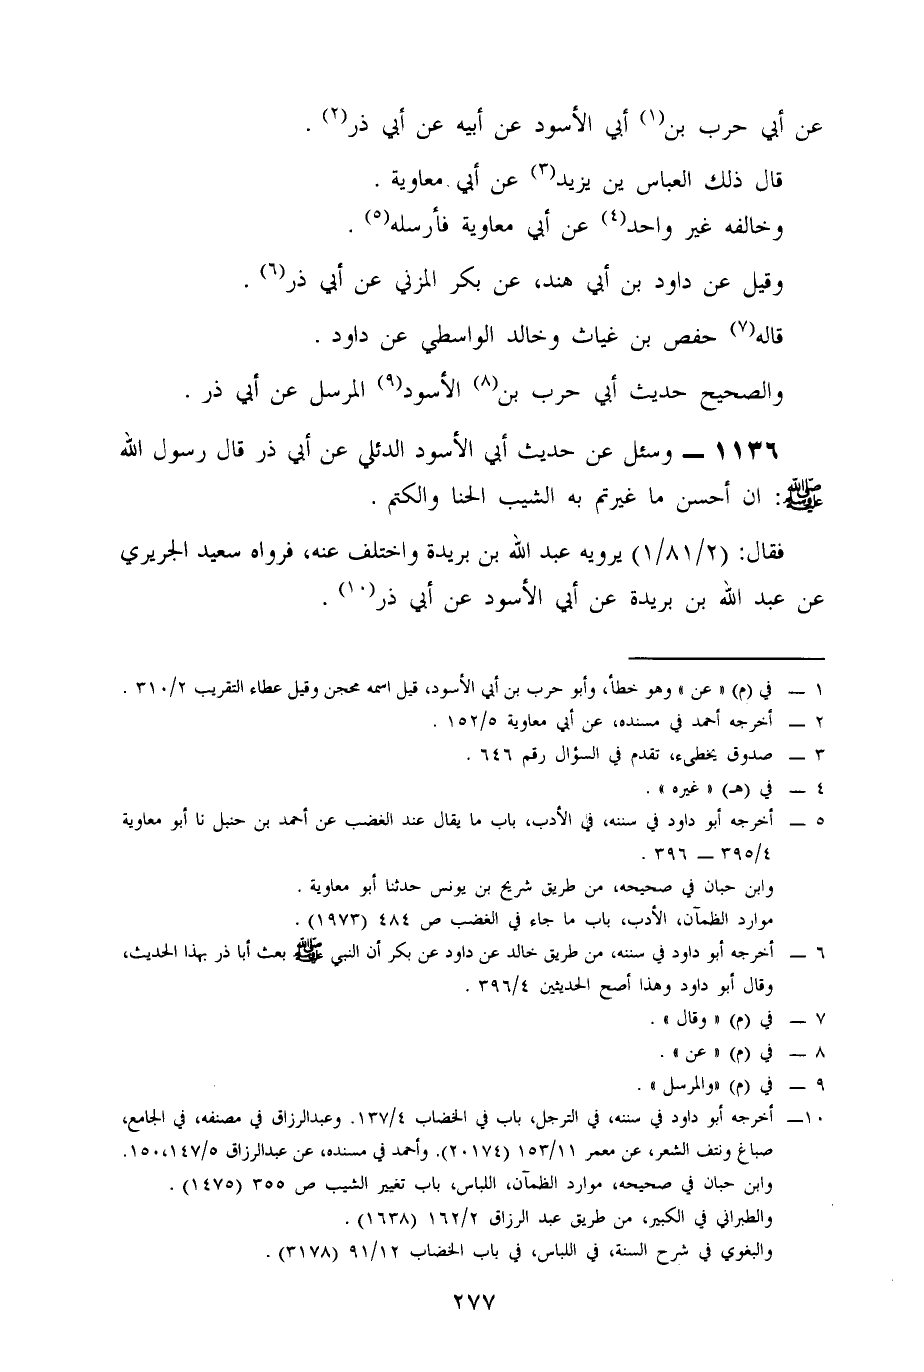 عن أبي حرب بن(١) أبي الأسود عن أبيه عن أبي ذر(٢) .
قال ذلك العباس ين يزيد(٣) عن أبي معاوية .
وخالفه غير واحد(٤) عن أبي معاوية فأرسله(٥) .
وقيل عن داود بن أبي هند، عن بكر المزني عن أبي ذر(٦) .
قاله(٧) حفص بن غياث وخالد الواسطي عن داود .
والصحيح حديث أبي حرب بن(٨) الأسود(٩) المرسل عن أبي ذر .
١١٣٦ — وسئل عن حديث أبي الأسود الدئلي عن أبي ذر قال رسول الله
ﷺ: ان أحسن ما غيرتم به الشيب الحنا والكتم .
فقال: (١/٨١/٢) يرويه عبد الله بن بريدة واختلف عنه، فرواه سعيد الجريري
عن عبد الله بن بريدة عن أبي الأسود عن أبي ذر(١٠) .
١ — في (م) « عن » وهو خطأ، وأبو حرب بن أبي الأسود، قيل اسمه محجن وقيل عطاء التقريب ٣١٠/٢ .
٢ — أخرجه أحمد في مسنده، عن أبي معاوية ١٥٢/٥ .
٣ — صدوق يخطىء، تقدم في السؤال رقم ٦٤٦ .
٤ — في (هـ) « غيره » .
٥ — أخرجه أبو داود في سننه، في الأدب، باب ما يقال عند الغضب عن أحمد بن حنبل نا أبو معاوية
٣٩٥/٤ — ٣٩٦ .
وابن حبان في صحيحه، من طريق شريح بن يونس حدثنا أبو معاوية .
موارد الظمآن، الأدب، باب ما جاء في الغضب ص ٤٨٤ (١٩٧٣) .
٦ — أخرجه أبو داود في سننه، من طريق خالد عن داود عن بكر أن النبي ﷺ بعث أبا ذر بهذا الحديث،
وقال أبو داود وهذا أصح الحديثين ٣٩٦/٤ .
٧ — في (م) « وقال » .
٨ — في (م) « عن » .
٩ — في (م) «والمرسل » .
١٠— أخرجه أبو داود في سننه، في الترجل، باب في الخضاب ١٣٧/٤. وعبدالرزاق في مصنفه، في الجامع،
صباغ ونتف الشعر، عن معمر ١٥٣/١١ (٢٠١٧٤). وأحمد في مسنده، عن عبدالرزاق ١٤٧/٥،١٥٠.
وابن حبان في صحيحه، موارد الظمآن، اللباس، باب تغيير الشيب ص ٣٥٥ (١٤٧٥) .
والطبراني في الكبير، من طريق عبد الرزاق ١٦٢/٢ (١٦٣٨) .
والبغوي في شرح السنة، في اللباس، في باب الخضاب ٩١/١٢ (٣١٧٨) .
٢٧٧